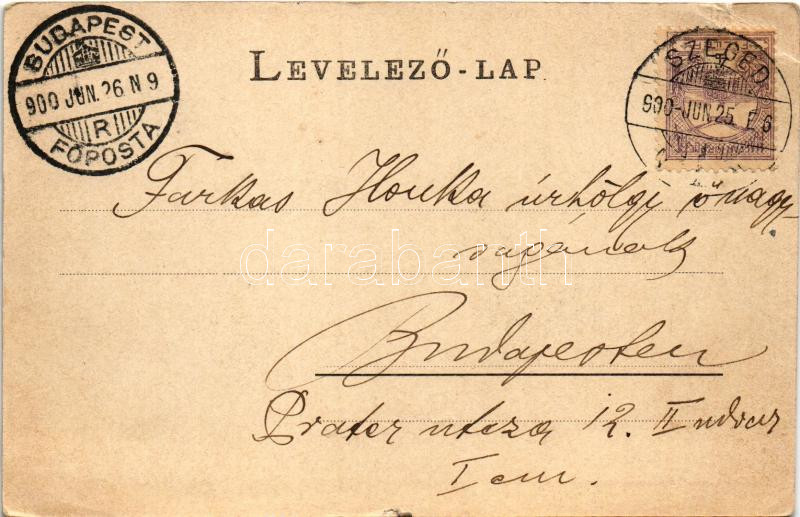 BUDAPEST
900 JUN. 26 N 9
R
FŐPOSTA
LEVELEZŐ-LAP
SZEGED
900-JUN. 25
Farkas Ilonka úrhölgy ő nagy-
ságának
darabanth
Budapesten
Prater utcza 12. II udvar
I em.